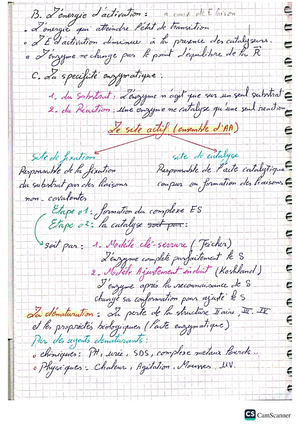 B. L'énergie d'activation :
• L'énergie qui atteindre l'état de transition
• L'E d'activation diminuée à la présence des catalyseurs.
• L'enzyme ne change pas le point d'équilibre de la R
C. La spécificité enzymatique :
1. du Substrat : L'enzyme n'agit que sur un seul substrat
2. du Réaction : une enzyme ne catalyse qu'une seule réaction
Le site actif (ensemble d'AA)
site de fixation
site de catalyse
Responsable de la fixation
Responsable de l'acte catalytique
du substrat par des liaisons
coupure ou formation des liaisons
non-covalentes
Etape 01: formation du complexe ES
Etape 02: la catalyse soit par :
soit par : 1. Modèle clé-serrure (Fischer)
L'enzyme complète parfaitement le S
2. Modèle Ajustement induit (Koshland)
L'enzyme après la reconnaissance de S
change sa conformation pour ajuster le S
La dénaturation : La perte de la structure IIaire, III, IV
et les propriétés biologiques (l'acte enzymatique)
Par des agents dénaturants :
• chimiques : PH, urée, SDS, complexe métaux lourds...
• Physiques : Chaleur, Agitation, Mousses, UV.
CS CamScanner